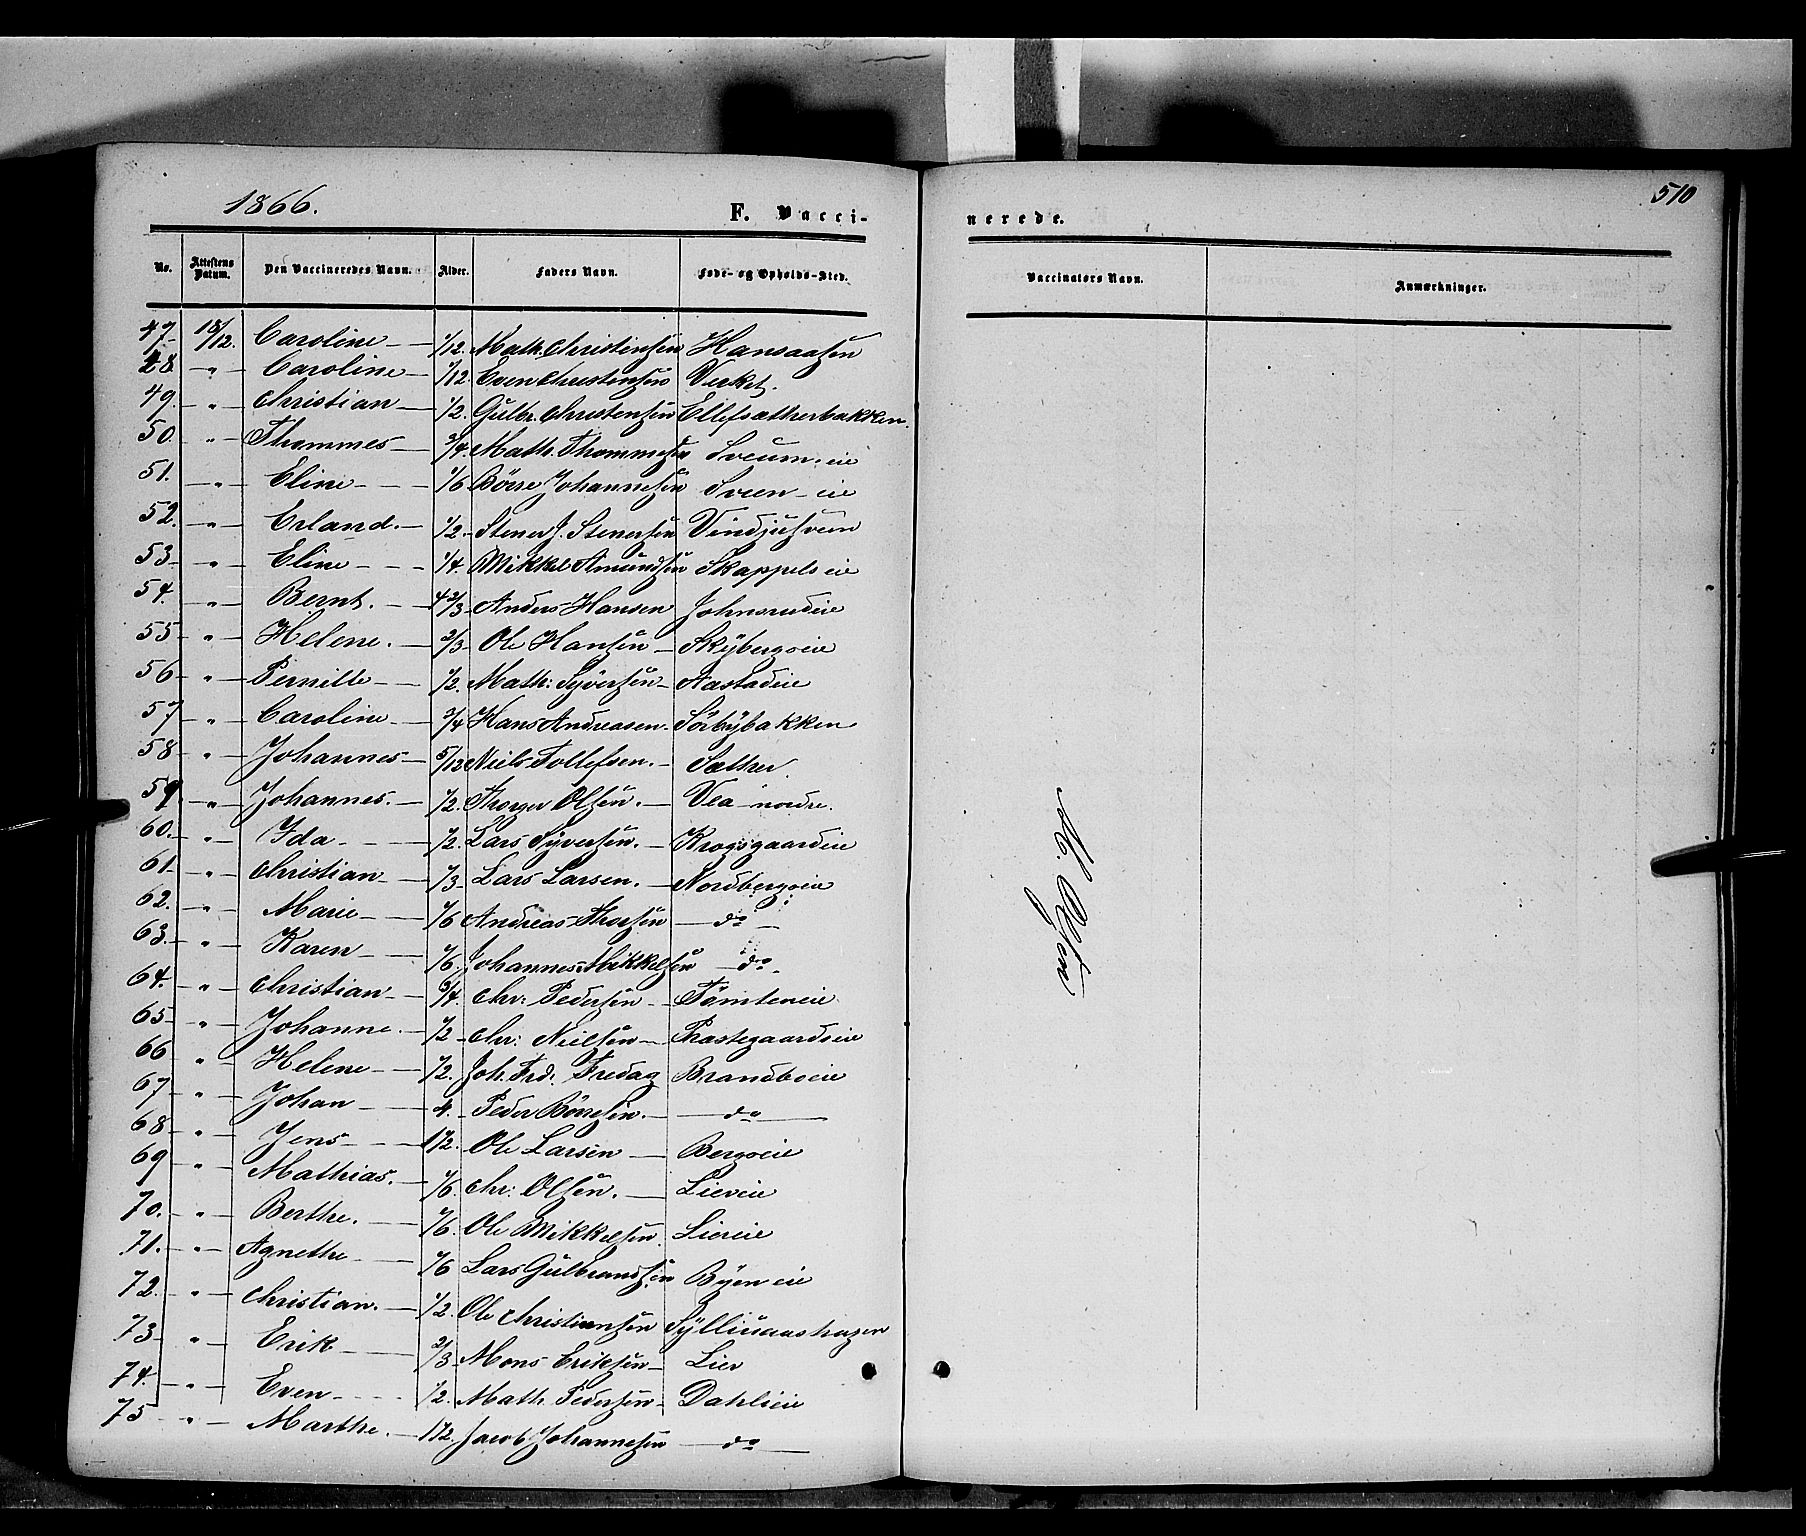 1866.
F. Vacci-
nerede.
510
No. Attestens Datum. Den Vaccineredes Navn. Alder. Faders Navn. Føde- og Opholds-Sted. Vaccinatørs Navn. Anmærkninger.
47 18/12. Caroline 1/12. Math. Christensen Hansaasen
48 " Caroline 1/12 Even Christensen Virket.
49. " Christian 1/2. Gulbr. Christensen Ellefsætherbakken.
50. " Thommes 3/4. Math. Thommesen Sveum eie
51. " Eline 1/6 Börre Johannesen Sveen eie
52. " Erland. 1/2. Stener J. Stenersen Vindjusveen
53. " Eline 1/4. Mikkel Amundsen Skappels eie
54. " Bernt. 4 2/3 Anders Hansen Johnsrudeie
55 " Helene. 2/3 Ole Hansen Skybergeie
56 " Pernille 1/2. Math: Syversen Aastadeie
57 " Caroline 3/4 Hans Andreasen. Sörbybakken
58 " Johannes 5/12 Niels Tollefsen. Sæther.
59 " Johannes. 1/2. Thorger Olsen. Vea nordre.
60. " Ida 1/2. Lars Syversen. Krogsgaardeie
61 " Christian 1/3 Lars Larsen. Nordbergeie
62. " Marie 1/6 Andreas Thorsen do
63. " Karen 1/6. Johannes Mikkelsen do.
64. " Christian 3/4. Chr: Pedersen Tömteneie
65 " Johanne. 1/2 Chr: Nielsen Præstegaardseie
66 " Helene 1/2. Joh. Frd: Fredag Brandboeie
67 " Johan 4. Peder Börresen. do
68 " Jens 1 1/2. Ole Larsen Bergeie
69 " Mathias. 1/6. Chr: Olsen. Liereie
70. " Berthe. 1/6. Ole Mikkelsen. Liereie
71. " Agnethe 1/6 Lars Gulbrandsen Byen eie
72. " Christian. 1/2. Ole Christiansen Sylliuaashagen
73 " Erik 2/3 Mons Eriksen Lier
74. " Even 1/2 Math. Pedersen Dahleie
75 " Marthe. 1 1/2. Jacob Johannesen do